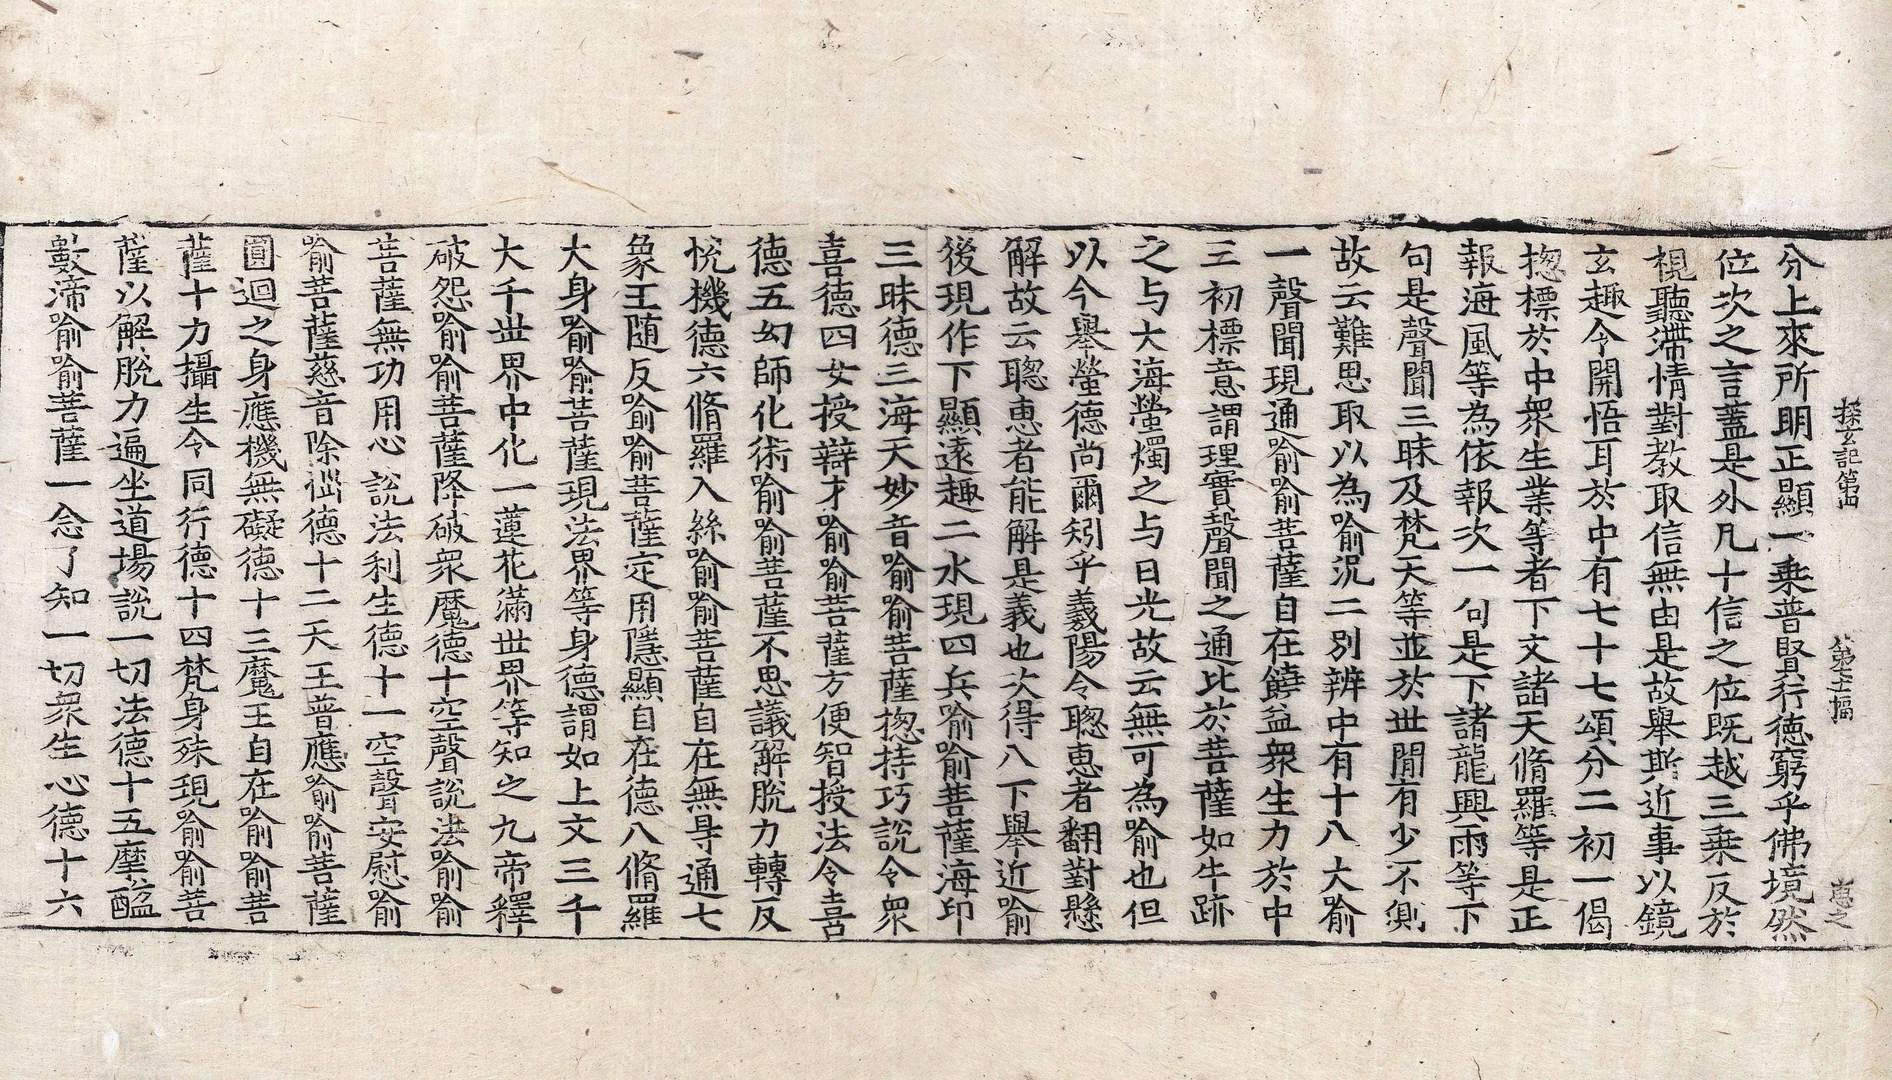 探玄記第四 第十五幅 惠之
分上來所明正顯一乘普賢行德窮乎佛境然
位次之言蓋是外凡十信之位旣越三乘反於
視聽滯情對教取信無由是故舉斯近事以鏡
玄趣令開悟耳於中有七十七頌分二初一偈
揔標於中衆生業等者下文諸天脩羅等是正
報海風等為依報次一句是下諸龍興雨等下
句是聲聞三昧及梵天等並於世間有少不測
故云難思取以為喻況二別辨中有十八大喻
一聲聞現通喻喻菩薩自在饒益衆生力於中
三初標意謂理實聲聞之通比於菩薩如牛跡
之与大海螢燭之与日光故云無可為喻也但
以今舉螢德尚爾矧乎羲陽令聰惠者翻對懸
解故云聰惠者能解是義也次得八下舉近喻
後現作下顯遠趣二水現四兵喻喻菩薩海印
三昧德三海天妙音喻喻菩薩揔持巧說令衆
喜德四女授辯才喻喻菩薩方便智授法令喜
德五幻師化術喻喻菩薩不思議解脫力轉反
悅機德六脩羅入絲喻喻菩薩自在無㝵通七
象王随反喻喻菩薩定用隱顯自在德八脩羅
大身喻喻菩薩現法界等身德謂如上文三千
大千世界中化一蓮花滿世界等知之九帝釋
破怨喻喻菩薩降破衆魔德十空聲說法喻喻
菩薩無功用心說法利生德十一空聲安慰喻
喻菩薩慈音除𢙣德十二天王普應喻喻菩薩
圓迴之身應機無礙德十三魔王自在喻喻菩
薩十力攝生令同行德十四梵身殊現喻喻菩
薩以解脫力遍坐道場說一切法德十五摩醯
數渧喻喻菩薩一念了知一切衆生心德十六